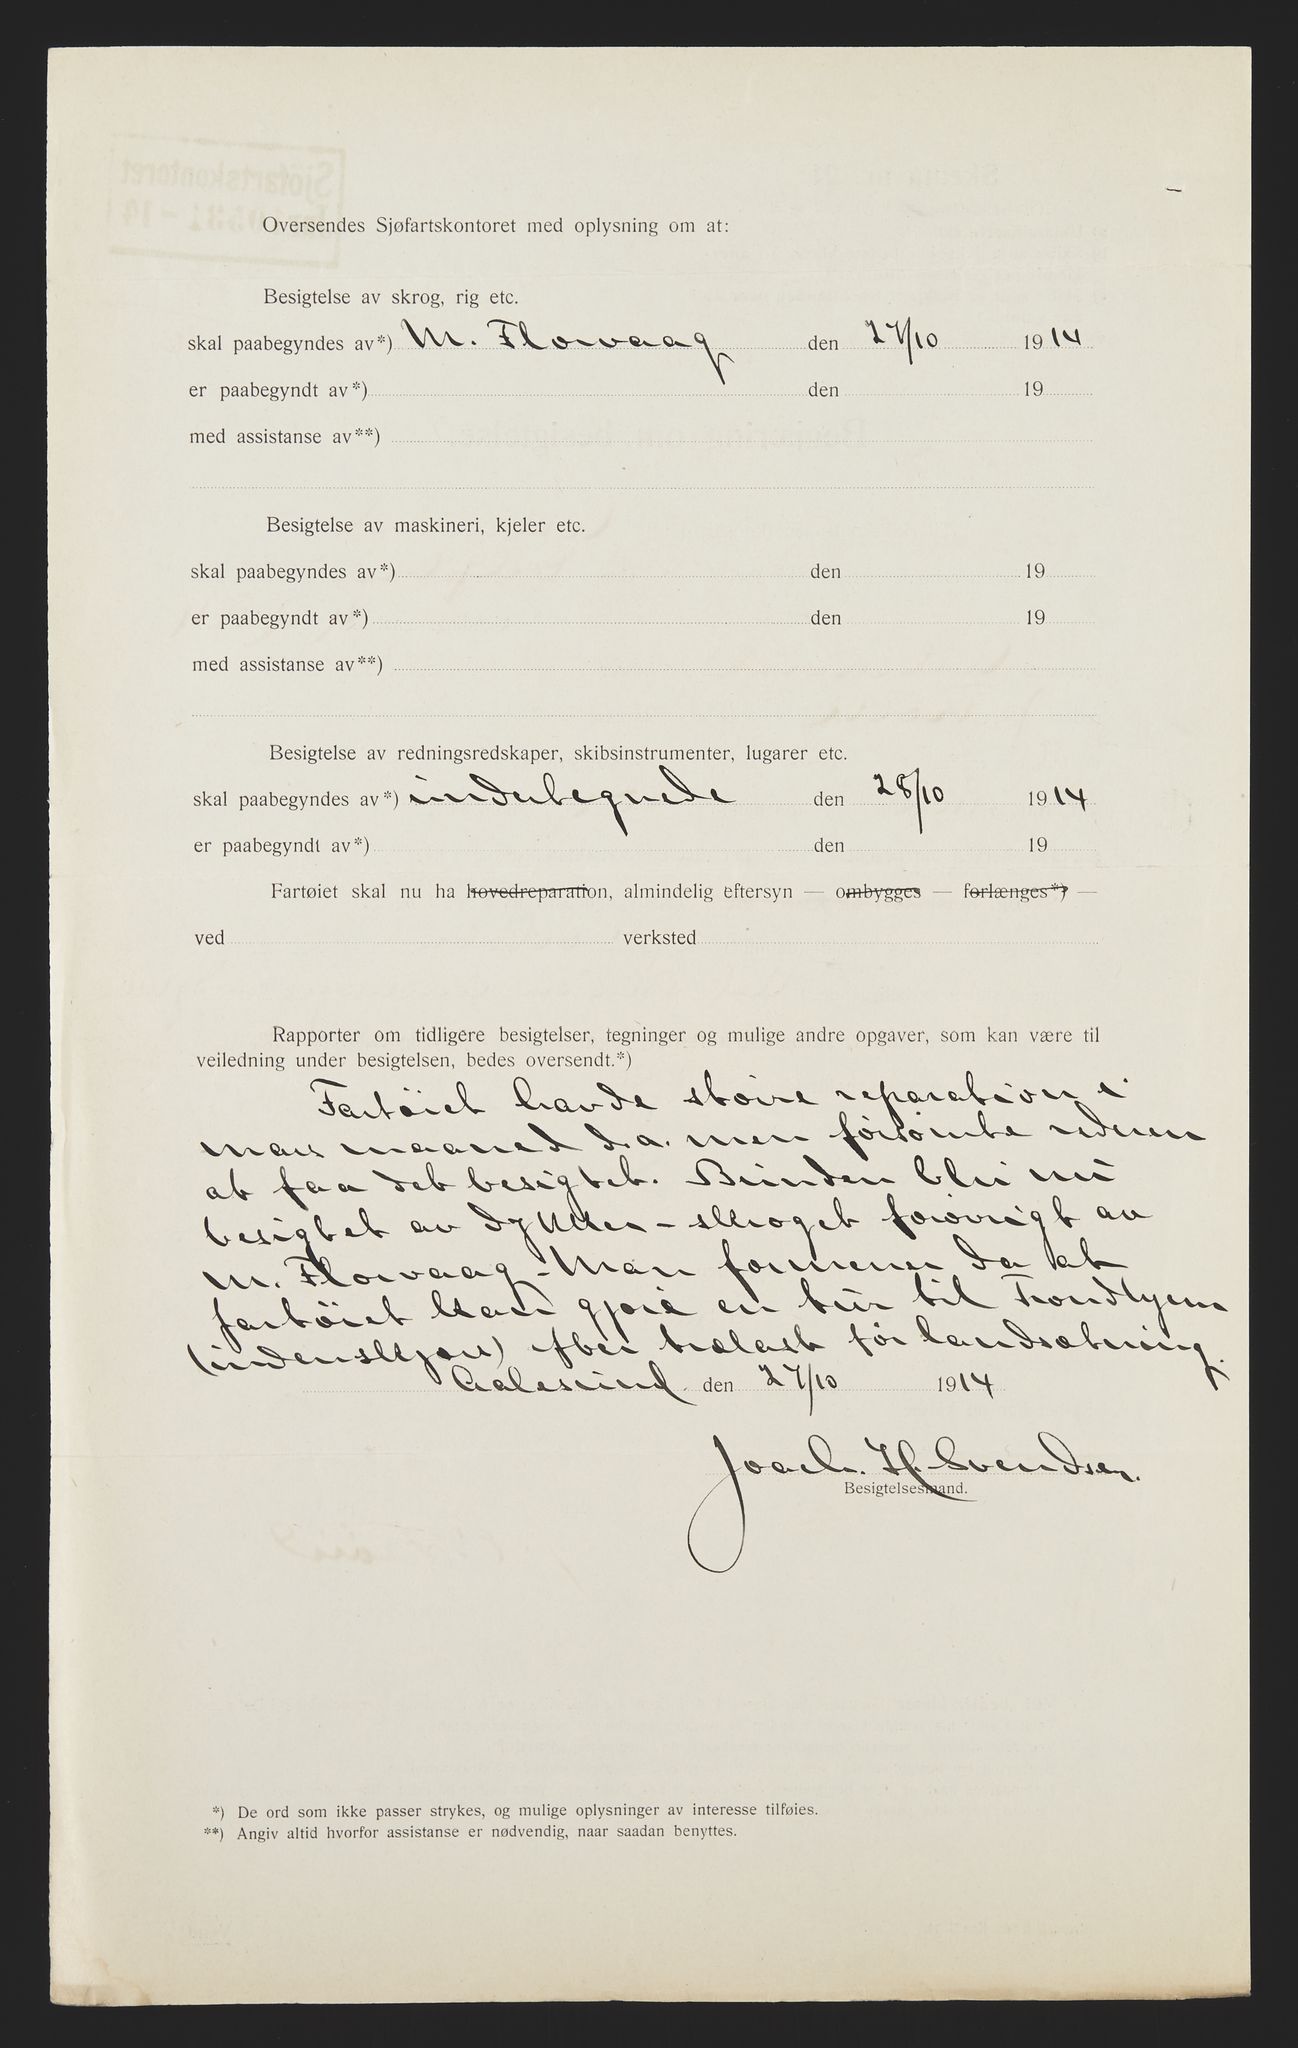 Oversendes Sjøfartskontoret med oplysning om at:
Besigtelse av skrog, rig etc.
skal paabegyndes av*) M. Flowaag den 27/10 1914
er paabegyndt av*) den 19
med assistanse av**)
Besigtelse av maskineri, kjeler etc.
skal paabegyndes av*) den 19
er paabegyndt av*) den 19
med assistanse av**)
Besigtelse av redningsredskaper, skibsinstrumenter, lugarer etc.
skal paabegyndes av*) undertegnede den 28/10 1914
er paabegyndt av*) den 19
Fartøiet skal nu ha hovedreparation, almindelig eftersyn — ombygges — forlænges*) —
ved verksted
Rapporter om tidligere besigtelser, tegninger og mulige andre opgaver, som kan være til
veiledning under besigtelsen, bedes oversendt.*)
Fartöiet havde större reparation i
mars maaned d.a. men forsömte rederen
at faa det besigtet. Bunden blir nu
besigtet av dykker - skroget forövrigt av
M. Flowaag - Man formener da at
fartöiet kan gjöre en tur til Trondhjem
(indenskjærs) efter trælast för landsætning.
Aalesund den 27/10 1914
Joach. H. Svendsen.
Besigtelsesmand.
*) De ord som ikke passer strykes, og mulige oplysninger av interesse tilføies.
**) Angiv altid hvorfor assistanse er nødvendig, naar saadan benyttes.